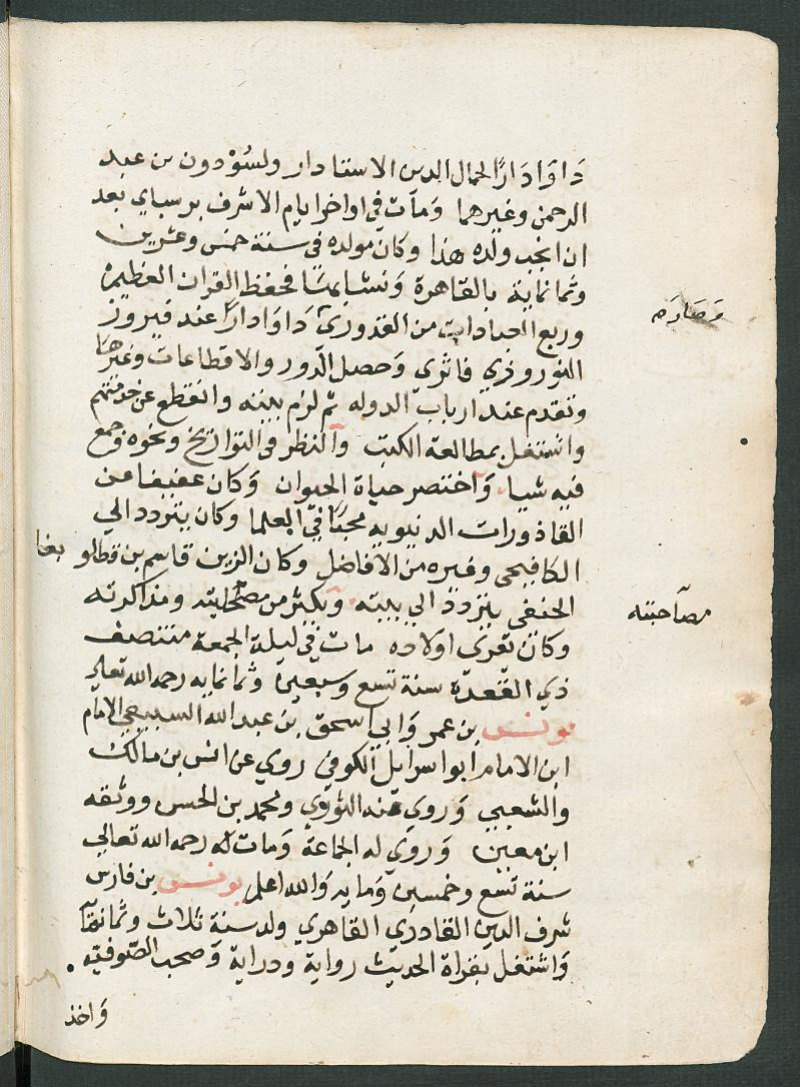 دَاوَادَارًا لجمال الدين الاستادار ولسُوْدون بن عبد
الرحمن وغيرهما وَمَات في اواخر ايام الاشرف برسباي بعد
ان انجب ولده هذا وكان مولده في سنة خمس وعشرين
وثمانماية بالقاهرة وَنشا بها فحفظ القران العظيم
وربع العبادات من القدوري دَاوَادارًا عند فيروز
النوروزي فاثري وَحصل الدور والاقطاعات وغيرها
وَصَارَ
وتقدم عند ارباب الدوله ثم لزم بيته وانقطع عن خدمتهم
واشتغل بمطالعة الكتب والنظر في التواريخ ونحوه وجمع
فيه شيا وَاختصر حياة الحيوان وَكان عفيفا من
القاذورات الدنيويه محبًا في العلما وكان يتردد الي
الكافيجي وغيره من الافاضل وكان الزين قاسم بن قطلو بغا
الحنفي يتردد الي بيته ويكثر من ومذاكرته
مصاحبته
وكان يقرئ اولاده مات في ليلة الجمعة منتصف
ذي القعدة سنة تسع وسبعين وثمانمايه رحمه الله تعالي
يونس بن عمر وَابي اسحق بن عبد الله السبيعي الامام
ابن الامام ابو اسرايل الكوفي روي عن انس بن مالك
والشعبي وَروي عنه الثوري ومحمد بن الحسن ووثقه
ابن معين وَروي له الجماعة وَمات له رحمه الله تعالي
سنة تسع وخمسين وَمايه وَالله اعلم يونس بن فارس
شرف الدين القادري القاهري ولد سنة ثلاث وثمانماية
وَاشتغل بقراة الحديث رواية ودراية وَصحب الصوفيه
وَاخذ